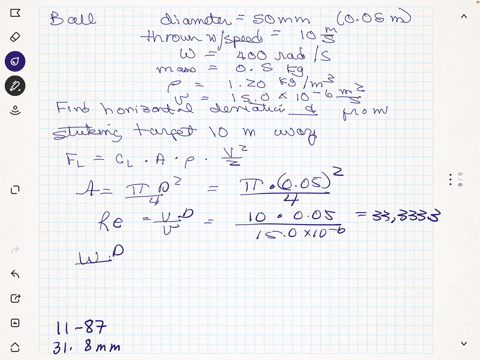 Ball diameter = 50mm (0.05m)
thrown w/speed = 10 m/s
W = 400 rad/s
mass = 0.5 kg
ρ = 1.20 kg/m³
v = 15.0 × 10⁻⁶ m²/s
Find horizontal d from
striking target 10 m away
F_L = C_L · A · ρ · V²/2
A = πD²/4 = π·(0.05)²/4
Re = V·D/v = 10 · 0.05/15.0×10⁻⁶ = 33,3333
W·D
11-87
31.8mm